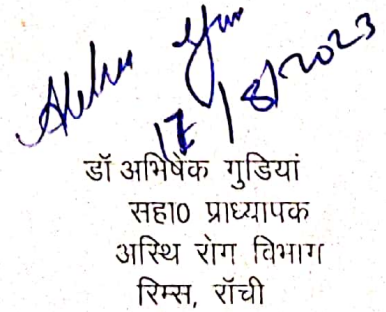 17/8/2023
डॉ अभिषेक गुडियां
सहा0 प्राध्यापक
अस्थि रोग विभाग
रिम्स, रॉची